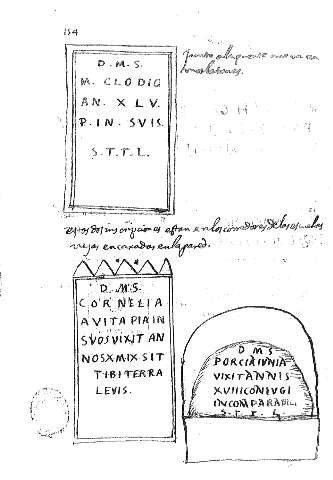 154
D. M. S.
M. CLODIG
AN. XLV.
P. IN. SVIS.
S. T. T. L.
estas dos inscripciones estan en los corredores de las escuelas
viejas encaxadas en la pared.
D. M S.
CORNELIA
AVITA PIA IN
SVOS VIXIT AN
NOS XMIX SIT
TIBI TERRA
LEVIS.
D M S
PORCIA IVNIA
VIXIT ANNIS
XVIII CONIVGI
INCOMPARABILI
S. T. T. L.